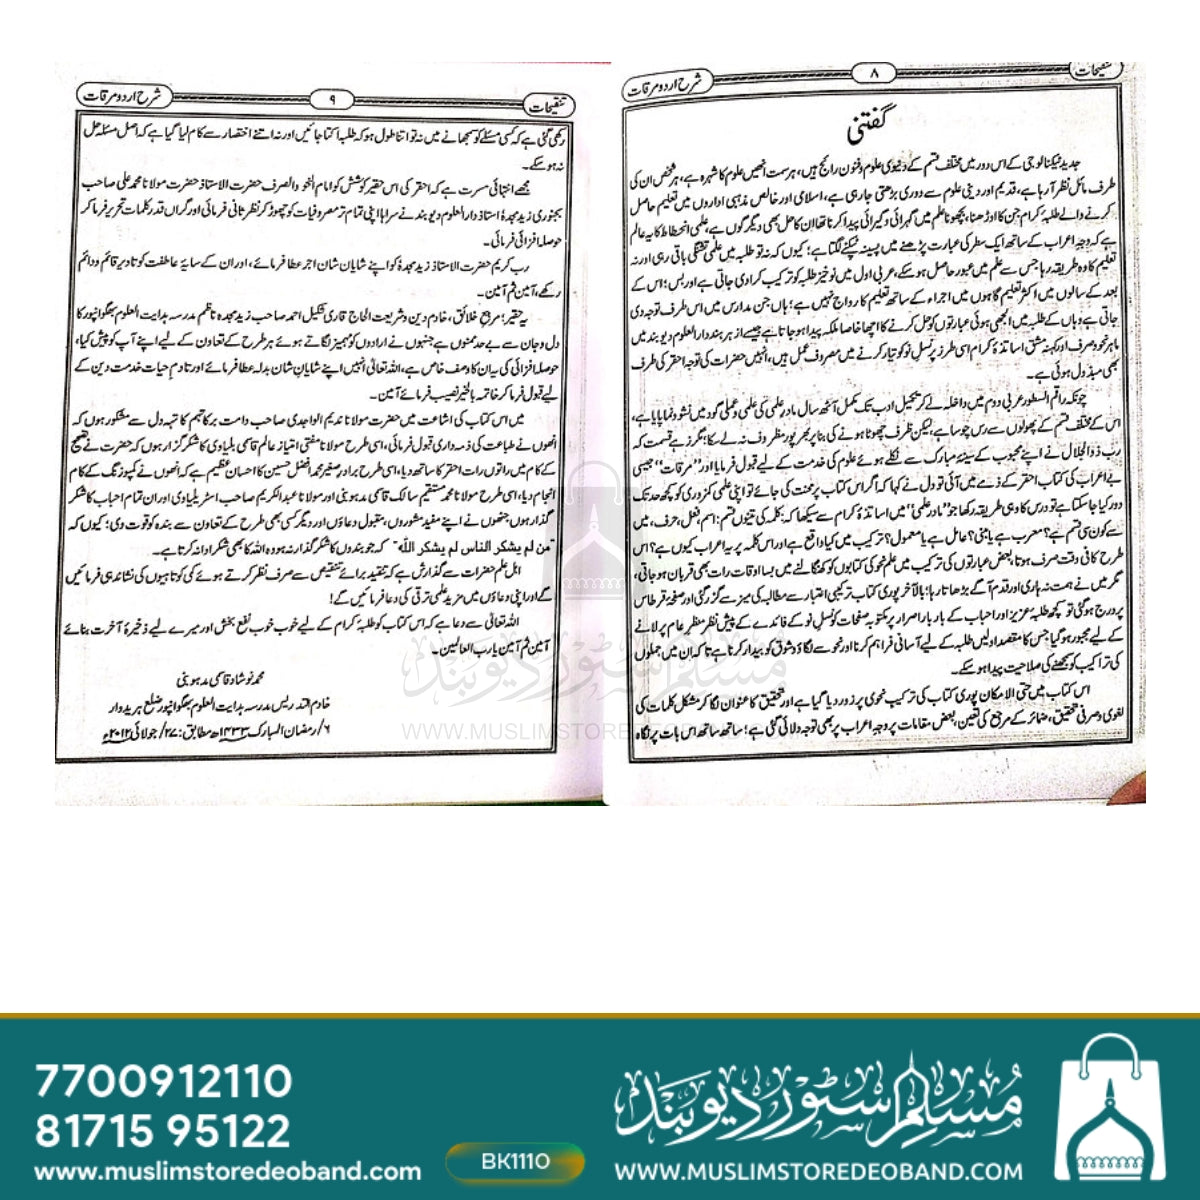 تنقیحات
۸
شرح اردو مرقات
گفتنی
جدید ٹیکنالوجی کے اس دور میں مختلف قسم کے دنیوی علوم و فنون رائج ہیں، ہر سمت انھیں علوم کا شہرہ ہے، ہر شخص ان کی
طرف مائل نظر آرہا ہے، قدیم اور دینی علوم سے دوری بڑھتی جارہی ہے، اسلامی اور خالص مذہبی اداروں میں تعلیم حاصل
کرنے والے طلبۂ کرام جن کا اوڑھنا، بچھونا علم میں گہرائی و گیرائی پیدا کرنا تھا ان کا حال بھی دیگر گوں ہے، علمی انحطاط کا یہ عالم
ہے کہ وجہِ اعراب کے ساتھ ایک سطر کی عبارت پڑھنے میں پسینہ ٹپکنے لگتا ہے؛ کیوں کہ نہ تو طلبہ میں علمی تشنگی باقی رہی اور نہ
تعلیم کا وہ طریقہ رہا جس سے علم میں عبور حاصل ہوسکے، عربی اول میں نو خیز طلبہ کو ترکیب کرادی جاتی ہے اور بس؛ اس کے
بعد کے سالوں میں اکثر تعلیم گاہوں میں اجراء کے ساتھ تعلیم کا رواج نہیں ہے؛ ہاں جن مدارس میں اس طرف توجہ دی
جاتی ہے وہاں کے طلبہ میں الجھی ہوئی عبارتوں کو حل کرنے کا اچھا خاصا ملکہ پیدا ہوجاتا ہے جیسے ازہر ہند دارالعلوم دیوبند میں
ماہر نحو و صرف اور کہنہ مشق اساتذۂ کرام اسی طرز پر نسلِ نو کو تیار کرنے میں مصروفِ عمل ہیں، انہیں حضرات کی توجہ احقر کی طرف
بھی مبذول ہوئی ہے۔
چونکہ راقم السطور عربی دوم میں داخلہ لے کر تکمیل ادب تک مکمل آٹھ سال مادر علمی کی علمی و عملی گود میں نشو و نما پایا ہے،
اس کے مختلف قسم کے پھولوں سے رس چوسا ہے، لیکن ظرف چھوٹا ہونے کی بنا پر بھرپور مظروف نہ لے سکا؛ مگر زہے قسمت کہ
رب ذوالجلال نے اپنے محبوب کے سینۂ مبارک سے نکلے ہوئے علوم کی خدمت کے لیے قبول فرمایا اور "مرقات" جیسی
بے اعراب کی کتاب احقر کے ذمے میں آئی تو دل نے کہا کہ اگر اس کتاب پر محنت کی جائے تو اپنی علمی کمزوری کو کچھ حد تک
دور کیا جاسکتا ہے تو درس کا وہی طریقہ رکھا جو "مادرِ علمی" میں اساتذۂ کرام سے سیکھا کہ: کلمہ کی تینوں قسم: اسم، فعل، حرف، میں
سے کون سی قسم ہے؟ معرب ہے یا مبنی؟ عامل ہے یا معمول؟ ترکیب میں کیا واقع ہے اور اس کلمہ پر یہ اعراب کیوں ہے؟ اس
طرح کافی وقت صرف ہوتا، بعض عبارتوں کی ترکیب میں علم نحو کی کتابوں کو کھنگالنے میں بسا اوقات رات بھی قربان ہوجاتی،
مگر میں نے ہمت نہ ہاری اور قدم آگے بڑھاتا رہا؛ بالآخر پوری کتاب ترکیبی اعتبار سے مطالعہ کی میز سے گزر گئی اور صفحۂ قرطاس
پر درج ہوگئی تو کچھ طلبہ عزیز اور احباب کے بار بار اصرار پر مکتوبہ صفحات کو نسلِ نو کے فائدے کے پیش نظر منظر عام پر لانے
کے لیے مجبور ہوگیا جس کا مقصد اولیں طلبہ کے لیے آسانی فراہم کرنا اور نحو سے لگاؤ و شوق کو بیدار کرنا ہے تاکہ ان میں جملوں
کی تراکیب کو سمجھنے کی صلاحیت پیدا ہوسکے۔
اس کتاب میں حتی الامکان پوری کتاب کی ترکیب نحوی پر زور دیا گیا ہے اور تحقیق کا عنوان لگا کر مشکل کلمات کی
لغوی و صرفی تحقیق، ضمائر کے مرجع کی تعیین، بعض مقامات پر وجہِ اعراب پر بھی توجہ دلائی گئی ہے؛ ساتھ ساتھ اس بات پر نگاہ
تنقیحات
۹
شرح اردو مرقات
رکھی گئی ہے کہ کسی مسئلے کو سمجھانے میں نہ تو اتنا طول ہو کہ طلبہ اکتا جائیں اور نہ اتنے اختصار سے کام لیا گیا ہے کہ اصل مسئلہ حل
نہ ہوسکے۔
مجھے انتہائی مسرت ہے کہ احقر کی اس حقیر کوشش کو امام النحو والصرف حضرت الاستاذ حضرت مولانا محمد علی صاحب
بجنوری زید مجدہٗ استاذ دارالعلوم دیوبند نے سراہا اپنی تمام تر مصروفیات کو چھوڑ کر نظر ثانی فرمائی اور گراں قدر کلمات تحریر فرما کر
حوصلہ افزائی فرمائی۔
رب کریم حضرت الاستاذ زید مجدہٗ کو اپنے شایانِ شان اجر عطا فرمائے، اور ان کے سایۂ عاطفت کو تا دیر قائم و دائم
رکھے، آمین ثم آمین۔
یہ حقیر؛ مرجعِ خلائق، خادم دین و شریعت الحاج قاری شکیل احمد صاحب زید مجدہ ناظم مدرسہ ہدایت العلوم بھگوانپور کا
دل و جان سے بے حد ممنوں ہے جنہوں نے ارادوں کو مہمیز لگاتے ہوئے ہر طرح کے تعاون کے لیے اپنے آپ کو پیش کیا،
حوصلہ افزائی کی یہ ان کا وصفِ خاص ہے، اللہ تعالیٰ انہیں اپنے شایانِ شان بدلہ عطا فرمائے اور تا دمِ حیات خدمت دین کے
لیے قبول فرما کر خاتمہ بالخیر نصیب فرمائے آمین۔
میں اس کتاب کی اشاعت میں حضرت مولانا ندیم الواجدی صاحب دامت برکاتہم کا تہہ دل سے مشکور ہوں کہ
انھوں نے طباعت کی ذمہ داری قبول فرمائی، اسی طرح مولانا مفتی امتیاز عالم قاسمی بلیاوی کا شکر گزار ہوں کہ حضرت نے تصحیح
کے کام میں راتوں رات احقر کا ساتھ دیا، اسی طرح برادر صغیر محمد افضل حسین کا احسان عظیم ہے کہ انھوں نے کمپوزنگ کے کام
انجام دیا، اسی طرح مولانا محمد مستقیم سالک قاسمی مدہوبنی اور مولانا عبدالکریم صاحب اسٹریلیاوی اور ان تمام احباب کا شکر
گذار ہوں جنھوں نے اپنے مفید مشوروں، مقبول دعاؤں اور دیگر کسی بھی طرح کے تعاون سے بندہ کو قوت دی؛ کیوں کہ
"من لم یشکر الناس لم یشکر اللہ" کہ جو بندوں کا شکر گذار نہ ہو وہ اللہ کا بھی شکر ادا نہ کرتا ہے۔
اہل علم حضرات سے گذارش ہے کہ تنقید برائے تنقیص سے صرف نظر کرتے ہوئے کمی کوتاہیوں کی نشاندہی فرمائیں
گے اور اپنی دعاؤں میں مزید علمی ترقی کی دعا فرمائیں گے!
اللہ تعالیٰ سے دعا ہے کہ اس کتاب کو طلبۂ کرام کے لیے خوب خوب نفع بخش اور میرے لیے ذخیرۂ آخرت بنائے
آمین ثم آمین یا رب العالمین۔
محمد نوشاد قاسمی مدہوبنی
خادم التدریس مدرسہ ہدایت العلوم بھگوانپور ضلع ہریدوار
۶/رمضان المبارک ۱۴۳۳ھ مطابق: ۲۷/جولائی ۲۰۱۲ء
مسلم سٹور دیوبند
WWW.MUSLIMSTOREDEOBAND.COM
7700912110
81715 95122
www.muslimstoredeoband.com
BK1110
مسلم سٹور دیوبند
WWW.MUSLIMSTOREDEOBAND.COM